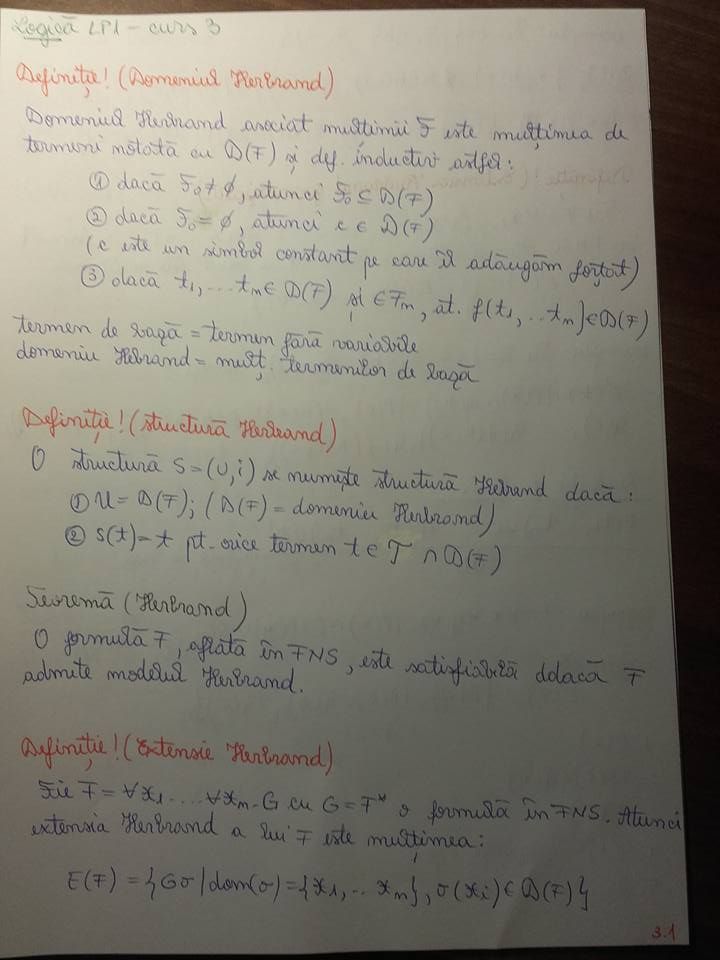 Logică LP1 - curs 3
Definiție! (Domeniul Herbrand)
Domeniul Herbrand asociat mulțimii F este mulțimea de
termeni notată cu D(F) și def. inductiv astfel:
① dacă F₀ ≠ ∅, atunci F₀ ⊆ D(F)
② dacă F₀ = ∅, atunci c ∈ D(F)
(c este un simbol constant pe care îl adăugăm forțat)
③ dacă t₁, ... tₙ ∈ D(F) și ∈ Fₙ, at. f(t₁, .. tₙ) ∈ D(F)
termen de bază = termen fără variabile
domeniu Hebrand = mulț. termenilor de bază
Definiție! (structură Herbrand)
O structură S = (U, i) se numește structură Hebrand dacă:
① U = D(F); (D(F) = domeniu Herbrand)
② S(t) = t pt. orice termen t ∈ T ∩ D(F)
Teoremă (Herbrand)
O formulă F, aflată în FNS, este satisfiabilă ddacă F
admite modelul Herbrand.
Definiție! (Extensie Herbrand)
Fie F = ∀x₁ .... ∀xₙ G cu G = F* o formulă în FNS. Atunci
extensia Herbrand a lui F este mulțimea:
E(F) = {Gσ | dom(σ) = {x₁, .. xₙ}, σ(xᵢ) ∈ D(F)}
3.1